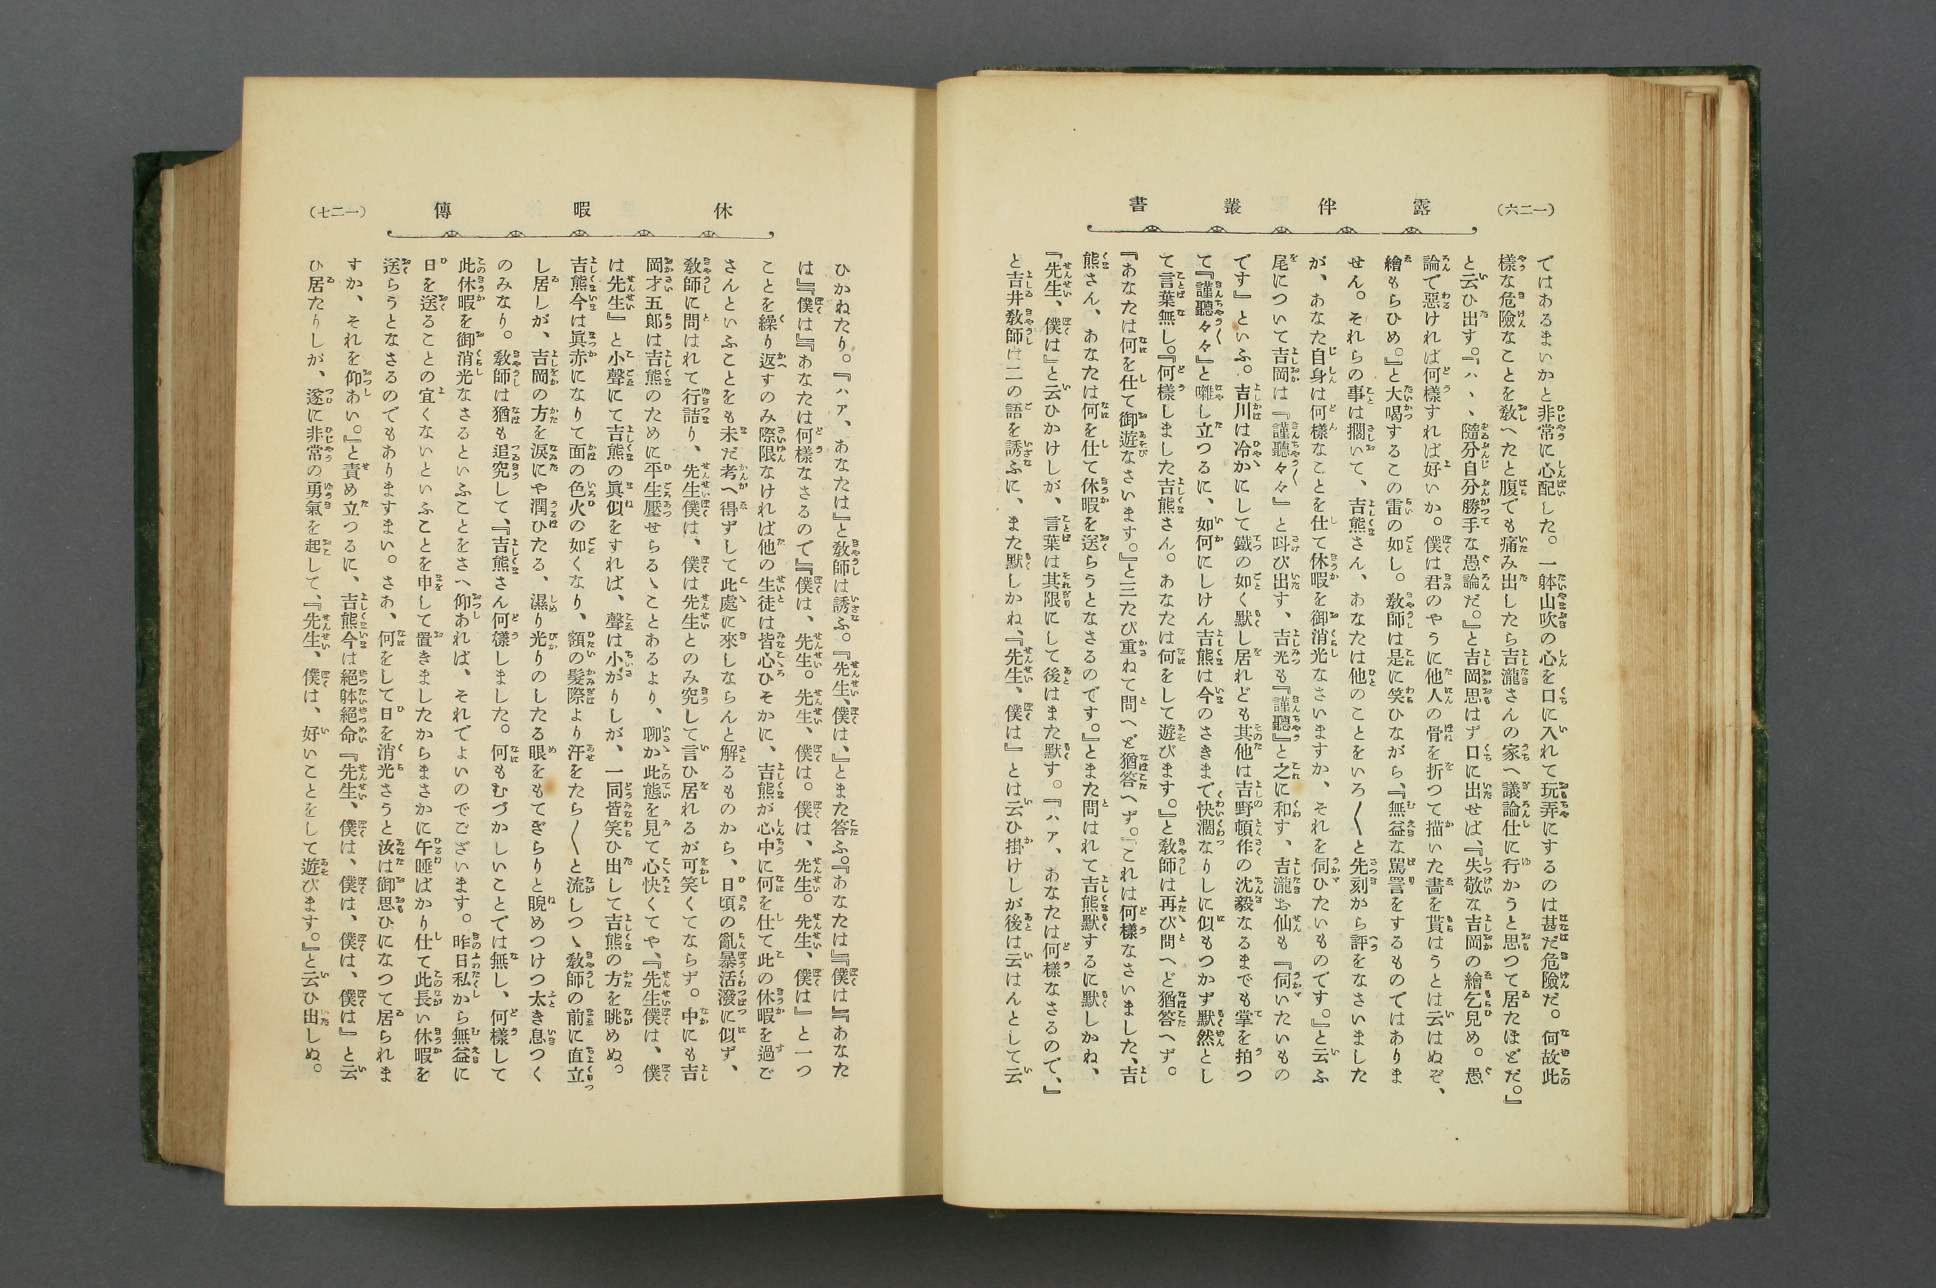 (一二六)
露伴叢書
ではあるまいかと非常に心配した。一躰山吹の心を口に入れて玩弄にするのは甚だ危險だ。何故此
樣な危險なことを敎へたと腹でも痛み出したら吉瀧さんの家へ議論仕に行かうと思つて居たほどだ。』
と云ひ出す。『ハヽヽ隨分自分勝手な愚論だ。』と吉岡思はず口に出せば、『失敬な吉岡の繪乞兒め。愚
論で惡ければ何樣すれば好いか。僕は君のやうに他人の骨を折つて描いた畵を貰はうとは云はぬぞ、
繪もらひめ。』と大喝するこの雷の如し。敎師は是に笑ひながら、『無益な罵詈をするものではありま
せん。それらの事は擱いて、吉熊さん、あなたは他のことをいろ〳〵と先刻から評をなさいました
が、あなた自身は何樣なことを仕て休暇を御消光なさいますか、それを伺ひたいものです。』と云ふ
尾について吉岡は『謹聽々々』と呌び出す、吉光も『謹聽』と之に和す、吉瀧お仙も『伺いたいもの
です』といふ。吉川は冷かにして鐵の如く默し居れども其他は吉野頓作の沈毅なるまでも掌を拍つ
て『謹聽々々』と囃し立つるに、如何にしけん吉熊は今のさきまで快濶なりしに似もつかず默然とし
て言葉無し。『何樣しました吉熊さん。あなたは何をして遊びます。』と敎師は再び問へど猶答へず。
『あなたは何を仕て御遊なさいます。』と三たび重ねて問へど猶答へず。『これは何樣なさいました、吉
熊さん、あなたは何を仕て休暇を送らうとなさるのです。』とまた問はれて吉熊默するに默しかね、
『先生、僕は』と云ひかけしが、言葉は其限にして後はまた默す。『ハア、あなたは何樣なさるので、』
と吉井敎師は二の語を誘ふに、また默しかね、『先生、僕は』とは云ひ掛けしが後は云はんとして云
(一二七)
休暇傳
ひかねたり。『ハア、あなたは』と敎師は誘ふ。『先生、僕は、』とまた答ふ。『あなたは』『僕は』『あなた
は』『僕は』『あなたは何樣なさるので』『僕は、先生。先生、僕は。僕は、先生。先生、僕は』と一つ
ことを繰り返すのみ際限なければ他の生徒は皆心ひそかに、吉熊が心中に何を仕て此の休暇を過ご
さんといふことをも未だ考へ得ずして此處に來しならんと解るものから、日頃の亂暴活潑に似ず、
敎師に問はれて行詰り、先生僕は、僕は先生とのみ究して言ひ居れるが可笑くてならず。中にも吉
岡才五郎は吉熊のために平生壓せらるヽことあるより、聊か此態を見て心快くてや、『先生僕は、僕
は先生』と小聲にて吉熊の眞似をすれば、聲は小がりしが、一同皆笑ひ出して吉熊の方を眺めぬ。
吉熊今は眞赤になりて面の色火の如くなり、額の髮際より汗をたら〳〵と流しつヽ敎師の前に直立
し居しが、吉岡の方を淚にや潤ひたる、濕り光りのしたる眼をもてぎらりと睨めつけつ太き息つく
のみなり。敎師は猶も追究して、『吉熊さん何樣しました。何もむづかしいことでは無し、何樣して
此休暇を御消光なさるといふことをさへ仰あれば、それでよいのでございます。昨日私から無益に
日を送ることの宜くないといふことを申して置きましたからまさかに午睡ばかり仕て此長い休暇を
送らうとなさるのでもありますまい。さあ、何をして日を消光さうと汝は御思ひになつて居られま
すか、それを仰あい。』と責め立つるに、吉熊今は絕躰絕命『先生、僕は、僕は、僕は、僕は』と云
ひ居たりしが、遂に非常の勇氣を起して、『先生、僕は、好いことをして遊びます。』と云ひ出しぬ。